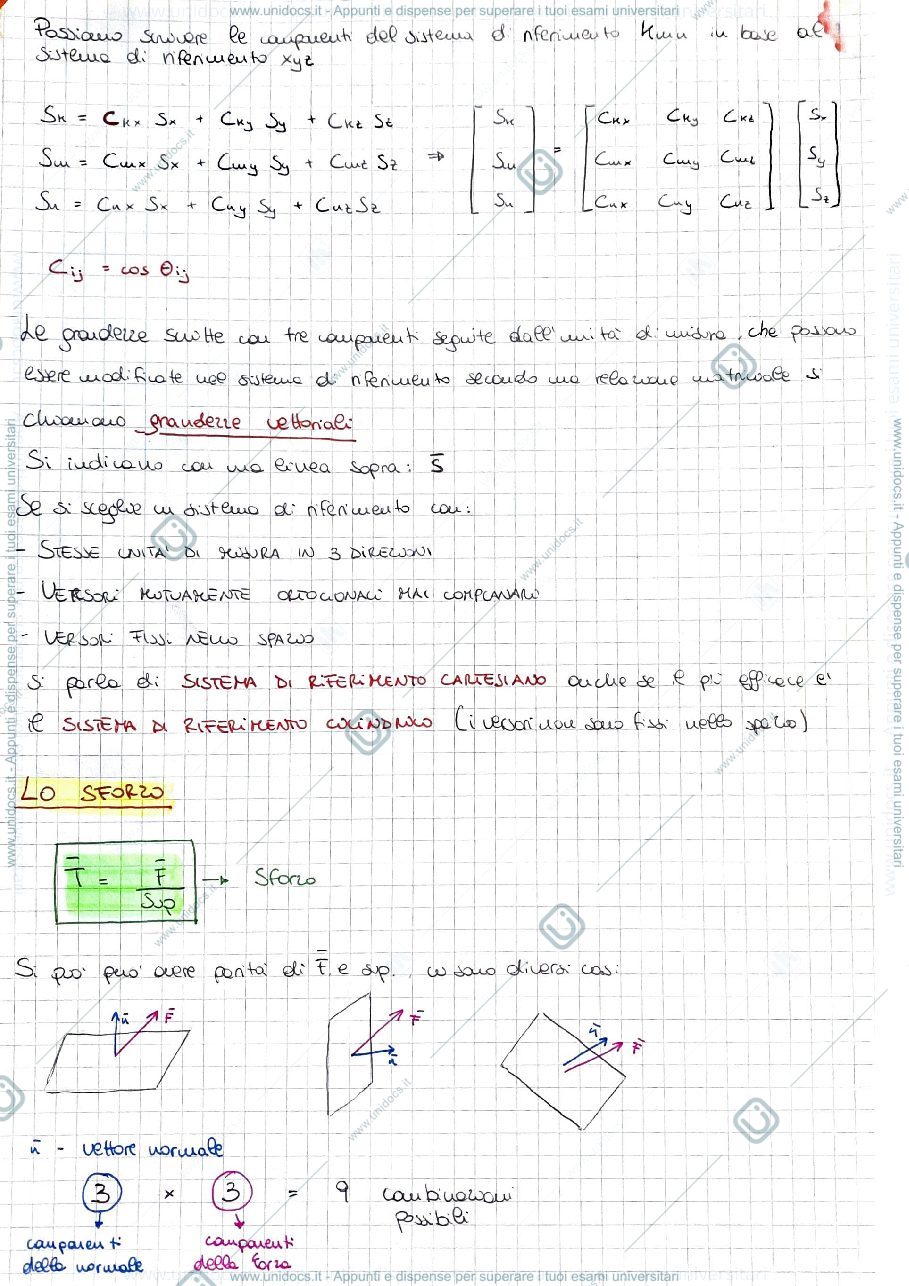 www.unidocs.it - Appunti e dispense per superare i tuoi esami universitari
Possiamo scrivere le componenti del sistema di riferimento kmn in base al
sistema di riferimento xyz
Sk = Ckx Sx + Cky Sy + Ckz Sz
Sm = Cmx Sx + Cmy Sy + Cmz Sz
Sn = Cnx Sx + Cny Sy + Cnz Sz
⇒ [Sk Sm Sn] = [Ckx Cky Ckz
Cmx Cmy Cmz
Cnx Cny Cnz] [Sx Sy Sz]
Cij = cos θij
Le grandezze scritte con tre componenti seguite dall'unità di misura, che possono
essere modificate nel sistema di riferimento secondo una relazione matriciale si
chiamano grandezze vettoriali
Si indicano con una linea sopra: S̄
Se si sceglie un sistema di riferimento con:
- STESSE UNITA' DI MISURA IN 3 DIREZIONI
- VERSORI MUTUAMENTE ORTOGONALI MAI COMPLANARI
- VERSORI FISSI NELLO SPAZIO
Si parla di SISTEMA DI RIFERIMENTO CARTESIANO anche se il più efficace è
il SISTEMA DI RIFERIMENTO CILINDRICO (i versori non sono fissi nello spazio)
LO SFORZO
T̄ = F̄ / Sup → Sforzo
Si può però avere parità di F̄ e sup., ci sono diversi casi:
n̄ F̄
F̄ n̄
n̄ F̄
n̄ - vettore normale
3 × 3 = 9 combinazioni
possibili
componenti
della normale
componenti
della forza
www.unidocs.it - Appunti e dispense per superare i tuoi esami universitari